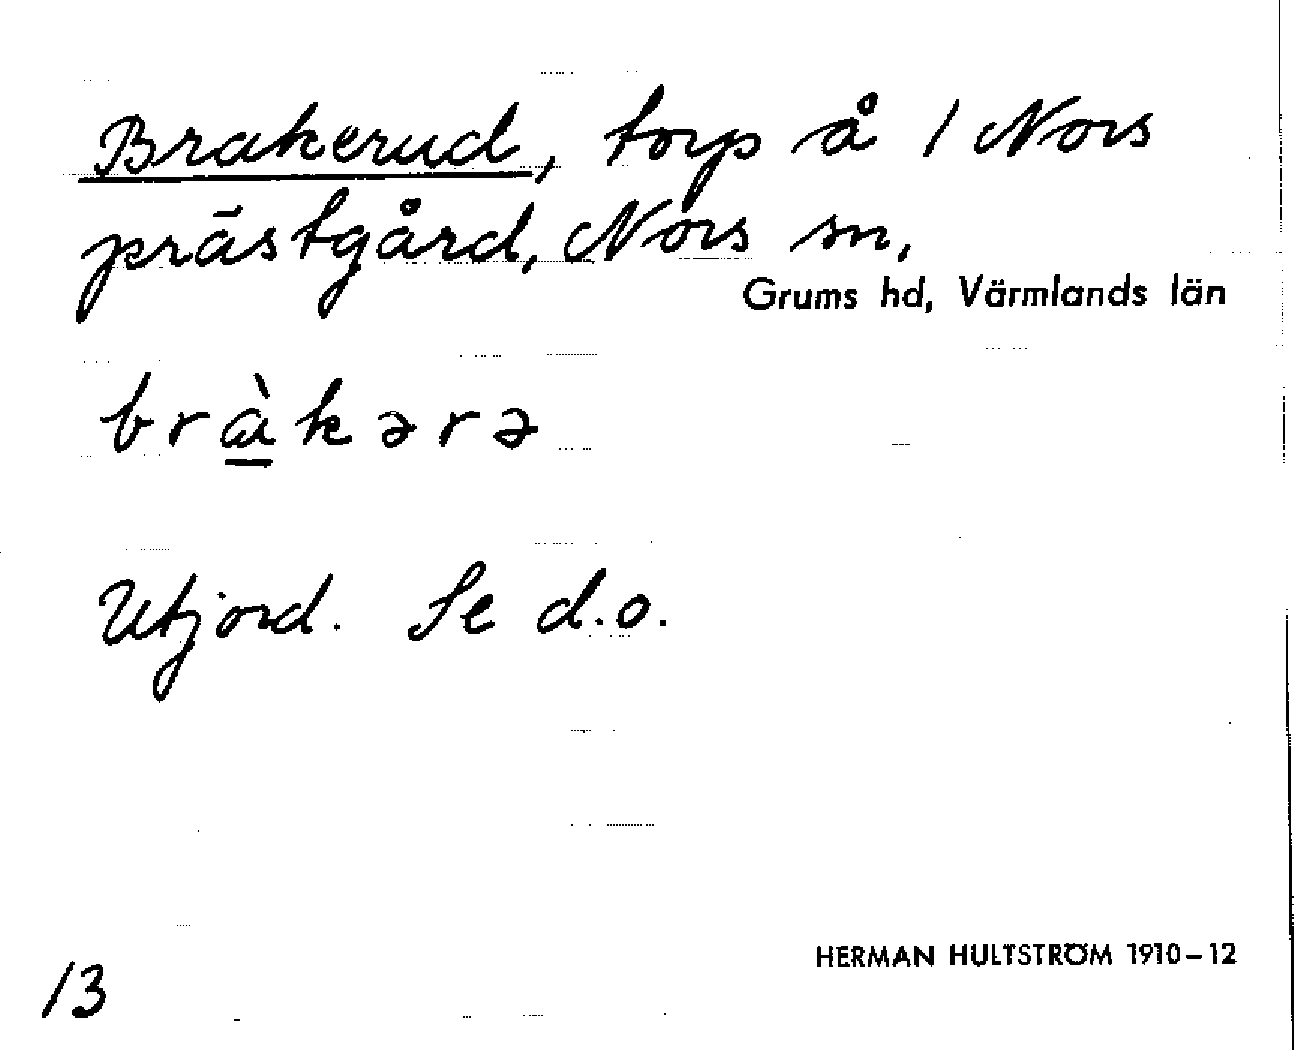 Brakerud, torp å 1 Nors
prästgård, Nors sn,
Grums hd, Värmlands län
bràkərə
Utjord. Se d.o.
HERMAN HULTSTRÖM 1910–12
13